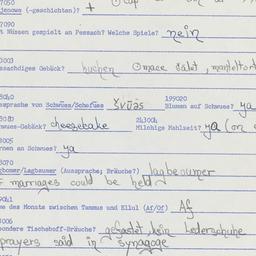 7050
jenowe (-geschichten)? +
7090
t Nüssen gespielt an Pessach? Welche Spiele? nein
003
ssachdiges Gebäck? kuchen
8040
ssprache von Schwuess/Schofuess švūəs
199020
Blumen auf Schwues? ya
8080
wues-Gebäck? cheesecake
243004
Milchige Mahlzeit? ya (on
8005
rnen an Schwues? ya
8070
gbomer/Lagbaumer (Aussprache; Bräuche?) lagbeoumer
marriages could be held
9041
me des Monats zwischen Tammus und Ellul (Af/Of) Af
006
sondere Tischeboff-Bräuche? gefastet, kein Lederschuhe
prayers said in synagoge